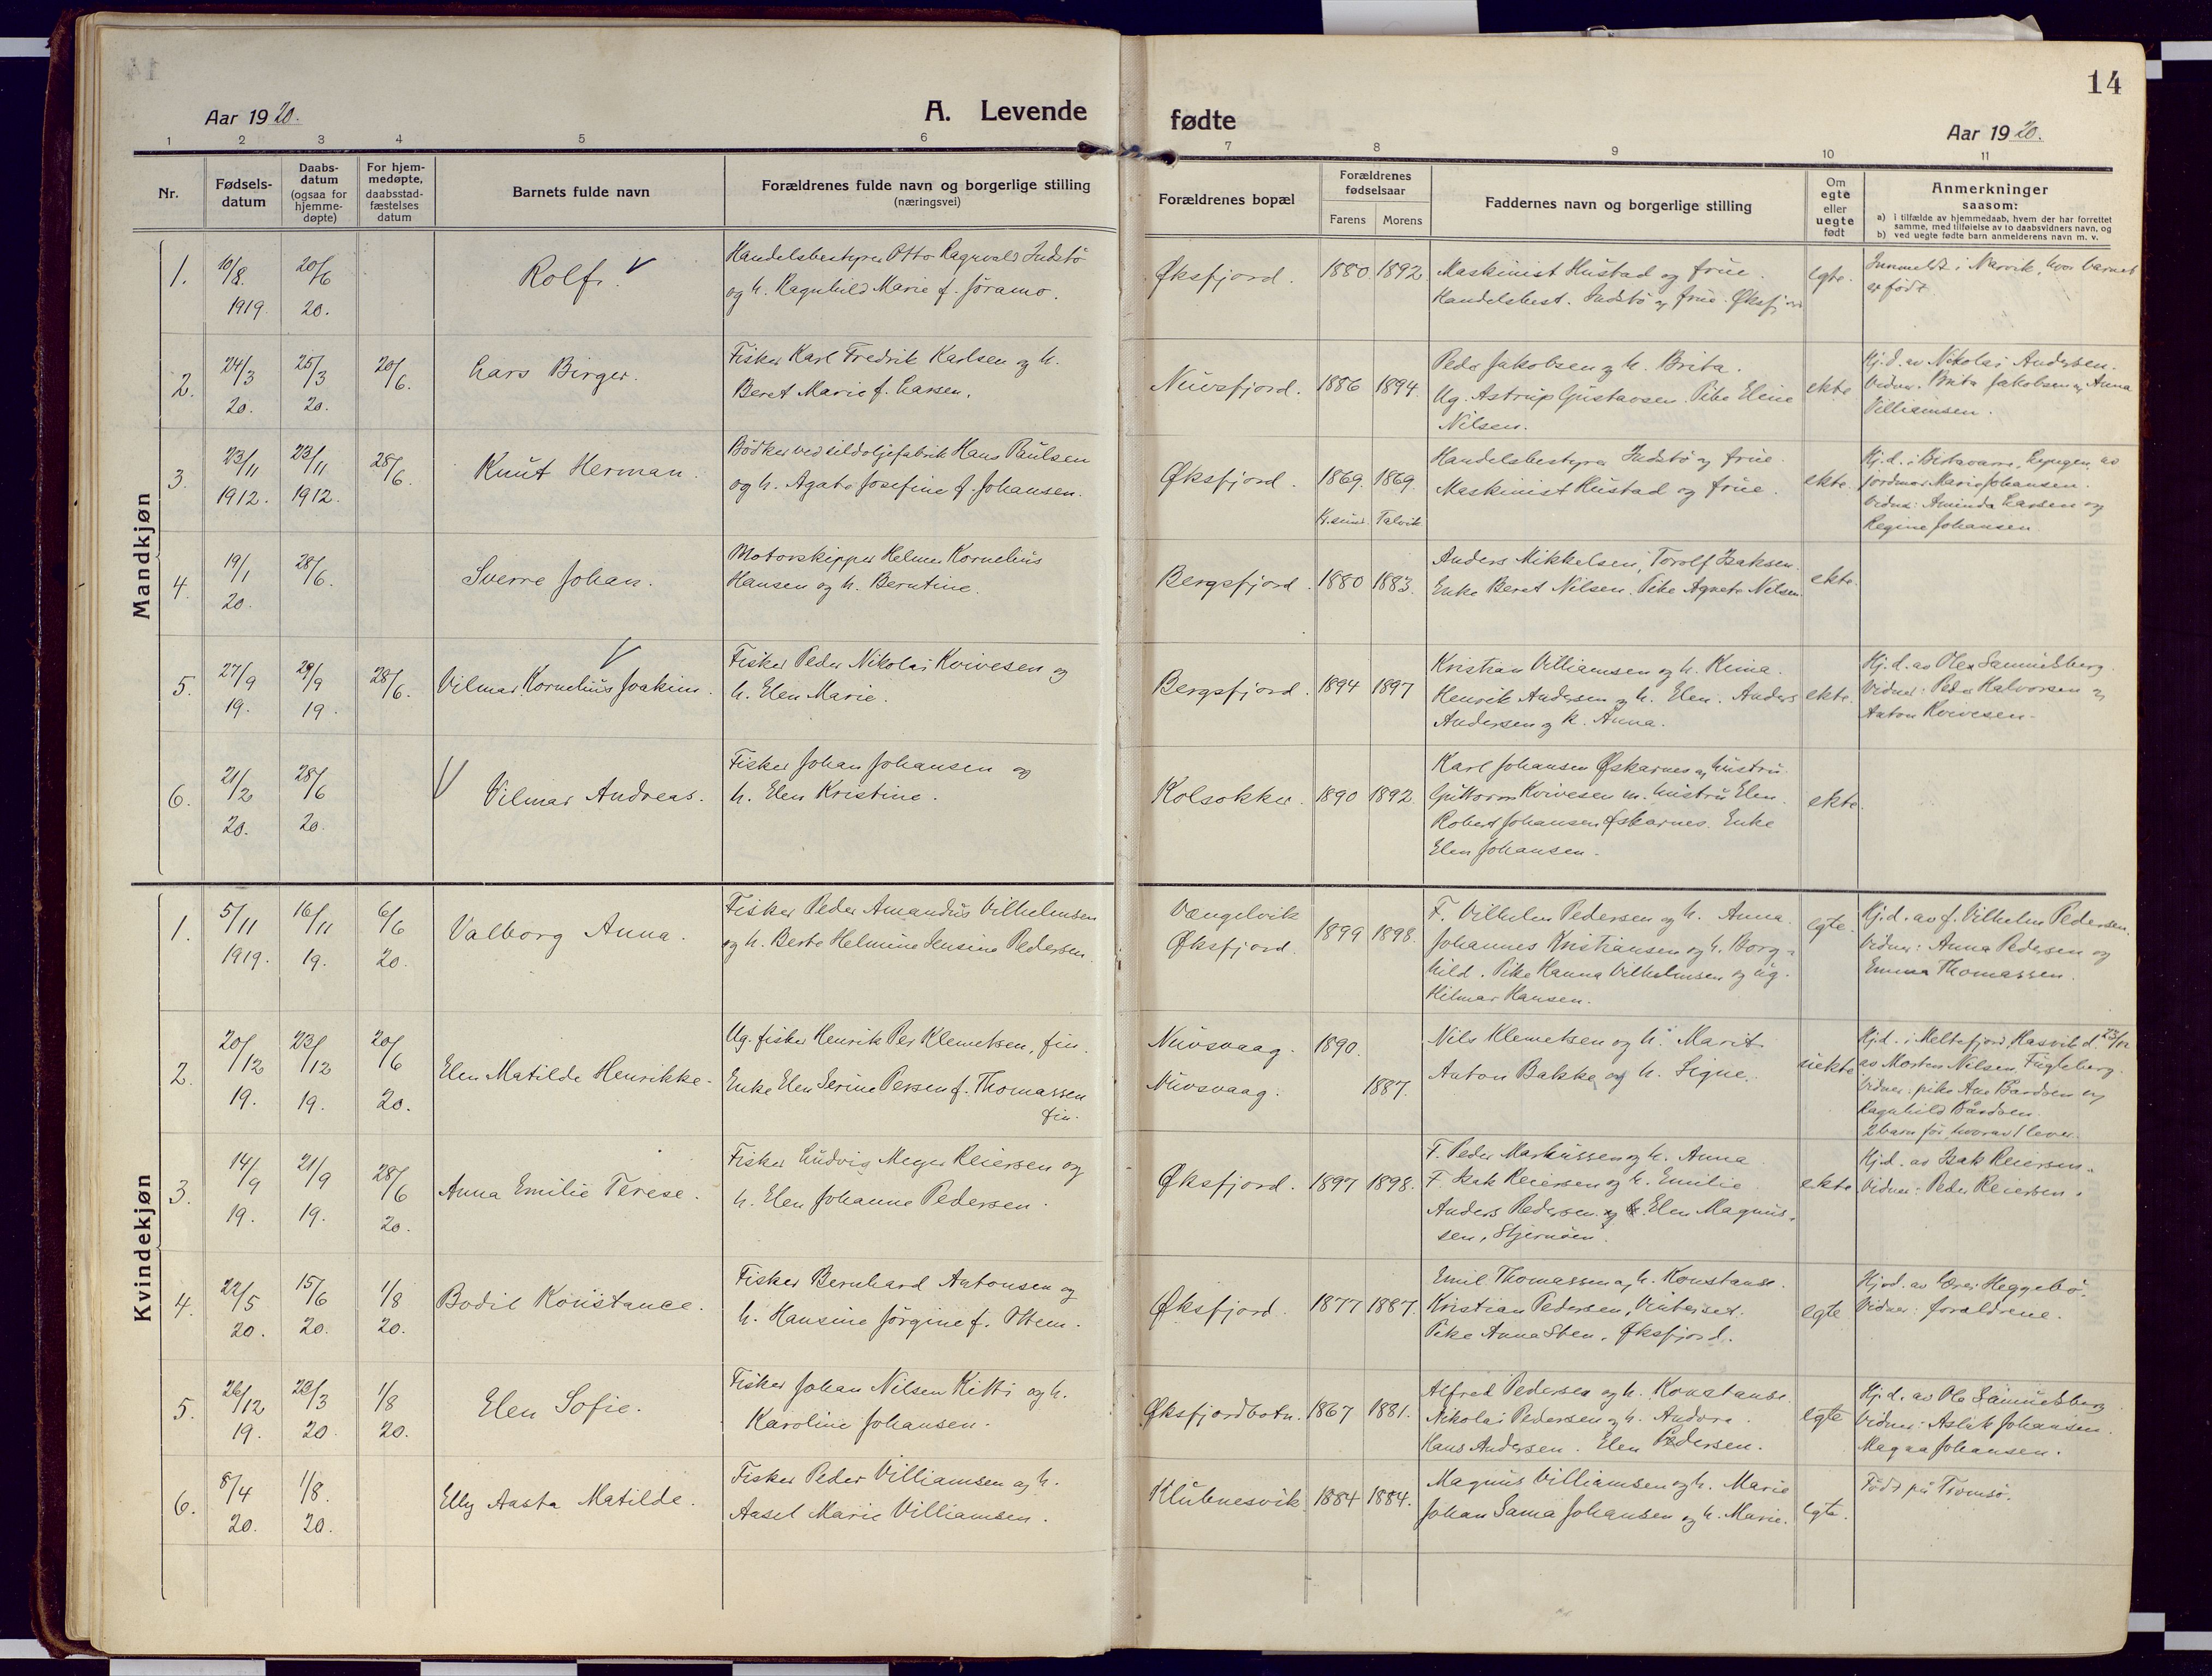 14
Aar 1920.
A. Levende
fødte
Aar 1920.
1 2 3 4 5 6 7 8 9 10 11
Nr.
Fødsels-
datum
Daabs-
datum
(ogsaa for
hjemme-
døpte)
For hjem-
medøpte,
daabsstad-
fæstelses
datum
Barnets fulde navn
Forældrenes fulde navn og borgerlige stilling
(næringsvei)
Forældrenes bopæl
Forældrenes
fødselsaar
Farens Morens
Faddernes navn og borgerlige stilling
Om
egte
eller
uegte
født
Anmerkninger
saasom:
a) i tilfælde av hjemmedaab, hvem der har forrettet
samme, med tilføielse av to daabsvidners navn, og
b) ved uegte fødte barn anmelderens navn m. v.
Mandkjøn
1.
10/8.
1919.
20/6
20.
Rolf.
Handelsbestyrer Otto Ragnvald Indstö
og h. Ragnhild Marie f. Jöramo.
Øksfjord.
1880 1892.
Maskinist Hustad og frue.
Handelsbest. Indstö og frue. Øksfjord
egte.
Innmeldt i Narvik, hvor barnet
er födt
2.
24/3
20.
25/3
20.
20/6.
Lars Birger.
Fisker Karl Fredrik Karlsen og h.
Beret Marie f. Larsen.
Nuvsfjord.
1886 1894.
Peder Jakobsen og h. Brita.
Ug. Astrup Gustavsen. Pike Eline
Nilsen.
ekte
Hj.d. av Nikolai Andersen.
Vidner: Brita Jakobsen og Anna
Villiamsen.
3.
23/11
1912.
23/11
1912.
28/6.
Knut Herman.
Bödker ved sildoljefabrik Hans Paulsen
og h. Agate Josefine f. Johansen.
Øksfjord.
1869. 1869.
Kr.sund. Talvik
Handelsbestyrer Indstö og frue.
Maskinist Hustad og frue.
ekte.
Hj.d. i Birtavarre, Lyngen, av
jordmor Marie Johansen.
Vidner: Aminda Larsen og
Regine Johansen.
4.
19/1
20.
28/6.
Sverre Johan.
Motorskipper Helmer Kornelius
Hansen og h. Berntine.
Bergsfjord.
1880 1883.
Anders Mikkelsen, Torolf Isaksen.
Enke Beret Nilsen. Pike Agnete Nilsen
ekte.
5.
27/9
19.
29/9
19.
28/6.
Vilmar Kornelius Joakim.
Fisker Peder Nikolai Kvivesen og
h. Elen Marie.
Bergsfjord.
1894 1897
Kristian Villiamsen og h. Keina.
Henrik Andersen og h. Elen. Anders
Andersen og h. Anna.
ekte.
Hj.d. av Ole Samuelsberg.
Vidner: Peder Halvorsen og
Anton Kvivesen.
6.
21/2
20.
28/6
20.
Vilmar Andreas.
Fisker Johan Johansen og
h. Elen Kristine.
Kolsokker.
1890 1892.
Karl Johansen Øskarnes og hustru.
Guttorm Kvivesen m. hustru Elen.
Robert Johansen Øskarnes. Enke
Elen Johansen.
ekte.
Kvindekjøn
1.
5/11
1919.
16/11
19.
6/6
20.
Valborg Anna.
Fisker Peder Amandus Vilhelmsen
og h. Berte Helmine Jensine Pedersen.
Vængelvik
Øksfjord.
1899 1898.
F. Vilhelm Pedersen og h. Anna.
Johannes Kristiansen og h. Borg-
hild. Pike Hanna Vilhelmsen og ug.
Hilmar Hansen.
egte.
Hj.d. av f. Vilhelm Pedersen.
Vidner: Anna Pedersen og
Emma Thomassen.
2.
20/12
19.
23/12
19.
20/6
20.
Elen Matilde Henrikke.
Ug. fisker Henrik Per Klemetsen, fin.
Enke Elen Serine Persen f. Thomassen
fin.
Nuvsvaag.
Nuvsvaag.
1890.
1887.
Nils Klemetsen og h. Marit
Anton Bakke og h. Signe.
uekte
Hj.d. i Meltefjord, Hasvik d. 23/12
av Morten Nilsen, Fugleberg.
Vidner: pike Ane Bårdsen og
Ragnhild Bårdsen.
2 barn för, hvorav 1 lever.
3.
14/9
19.
21/9
19.
28/6
20.
Anna Emilie Terese.
Fisker Ludvig Meyer Reiersen og
h. Elen Johanne Pedersen.
Øksfjord.
1897 1898.
F. Peder Markussen og h. Anna
F. Isak Reiersen og h. Emilie
Anders Pedersen og Elen Magnus-
sen, Stjernöen.
ekte
Hj.d. av Isak Reiersen.
Vidner: Peder Reiersen.
4.
22/5
20.
15/6
20.
1/8
20.
Bodil Konstance.
Fisker Bernhard Antonsen og
h. Hansine Jörgine f. Ottem.
Øksfjord.
1877 1887.
Emil Thomassen og h. Konstanse.
Kristian Pedersen, Vinterset.
Pike Anna Sten, Øksfjord.
egte
Hj.d. av lærer Heggebö.
Vidner: forældrene.
5.
26/12
19.
28/3
20.
1/8
20.
Elen Sofie.
Fisker Johan Nilsen Kitti og h.
Karoline Johansen.
Øksfjordbotn.
1867 1881.
Alfred Pedersen og h. Konstanse
Nikolai Pedersen og h. Andora.
Hans Andersen. Elen Pedersen.
egte
Hj.d. av Ole Samuelsberg.
Vidner: Aslak Johansen.
Magna Johansen.
6.
8/4
20.
1/8.
20.
Elly Aasta Matilde.
Fisker Peder Villiamsen og h.
Aasel Marie Villiamsen.
Klubnesvik
1884 1884.
Magnus Villiamsen og h. Marie
Johan Sama Johansen og h. Marie.
egte.
Födt på Tromsö.